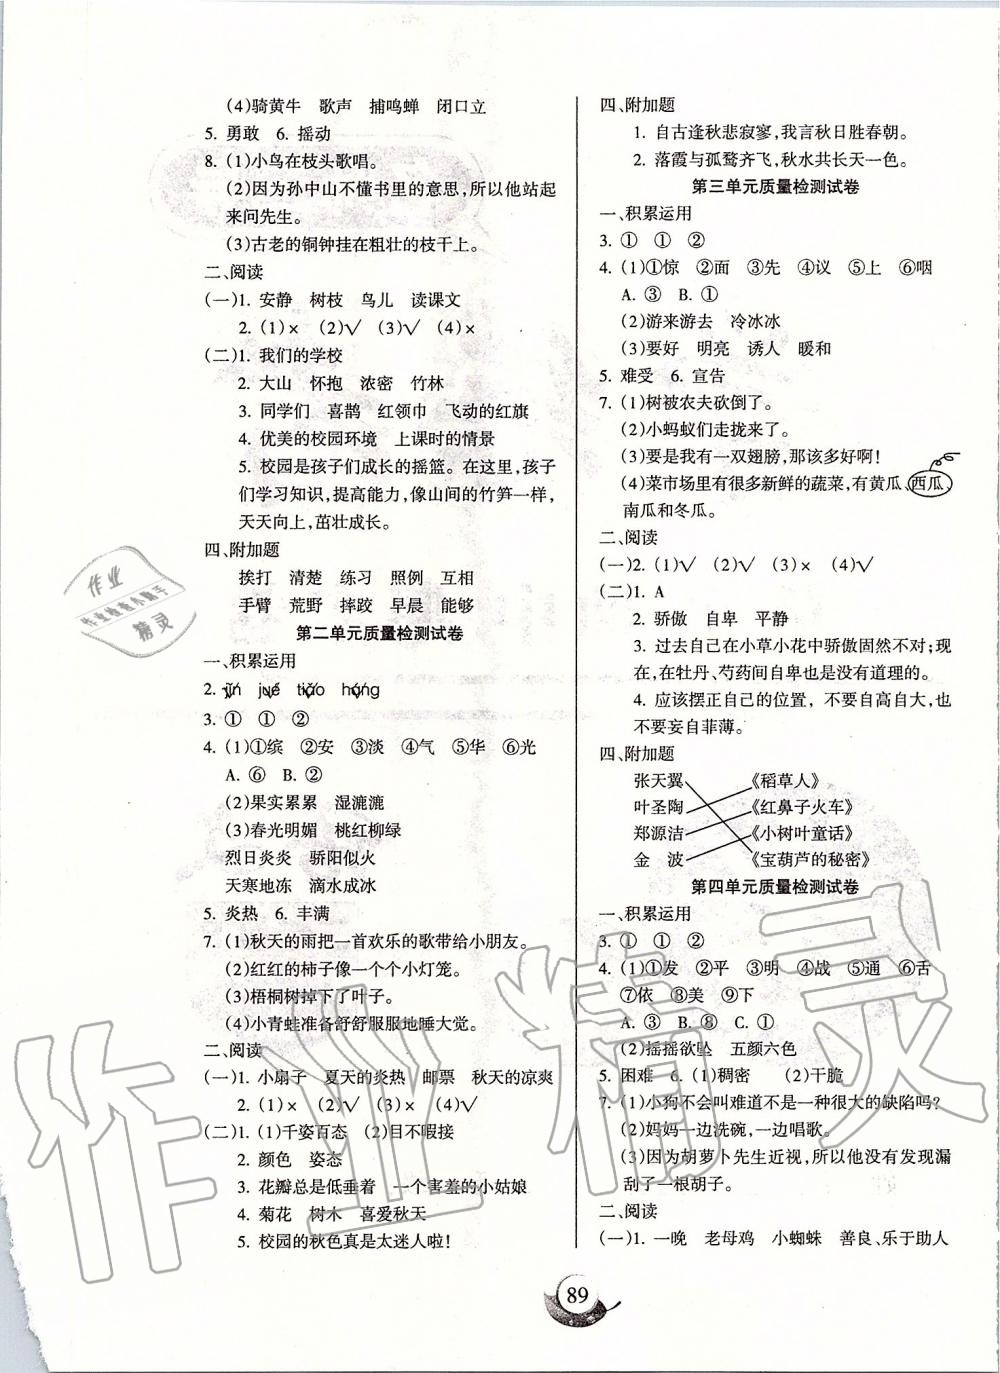 (4)骑黄牛 歌声 捕鸣蝉 闭口立
5. 勇敢 6. 摇动
8. (1)小鸟在枝头歌唱。
(2)因为孙中山不懂书里的意思,所以他站起
来问先生。
(3)古老的铜钟挂在粗壮的枝干上。
二、阅读
(一)1. 安静 树枝 鸟儿 读课文
2. (1)× (2)√ (3)√ (4)×
(二)1. 我们的学校
2. 大山 怀抱 浓密 竹林
3. 同学们 喜鹊 红领巾 飞动的红旗
4. 优美的校园环境 上课时的情景
5. 校园是孩子们成长的摇篮。在这里,孩子
们学习知识,提高能力,像山间的竹笋一样,
天天向上,茁壮成长。
四、附加题
挨打 清楚 练习 照例 互相
手臂 荒野 摔跤 早晨 能够
第二单元质量检测试卷
一、积累运用
3. ① ① ②
4. (1)①缤 ②安 ③淡 ④气 ⑤华 ⑥光
A. ⑥ B. ②
(2)果实累累 湿漉漉
(3)春光明媚 桃红柳绿
烈日炎炎 骄阳似火
天寒地冻 滴水成冰
5. 炎热 6. 丰满
7. (1)秋天的雨把一首欢乐的歌带给小朋友。
(2)红红的柿子像一个个小灯笼。
(3)梧桐树掉下了叶子。
(4)小青蛙准备舒舒服服地睡大觉。
二、阅读
(一)1. 小扇子 夏天的炎热 邮票 秋天的凉爽
2. (1)× (2)√ (3)× (4)√
(二)1. (1)千姿百态 (2)目不暇接
2. 颜色 姿态
3. 花瓣总是低垂着 一个害羞的小姑娘
4. 菊花 树木 喜爱秋天
5. 校园的秋色真是太迷人啦!
四、附加题
1. 自古逢秋悲寂寥,我言秋日胜春朝。
2. 落霞与孤鹜齐飞,秋水共长天一色。
第三单元质量检测试卷
一、积累运用
3. ① ① ②
4. (1)①惊 ②面 ③先 ④议 ⑤上 ⑥咽
A. ③ B. ①
(2)游来游去 冷冰冰
(3)要好 明亮 诱人 暖和
5. 难受 6. 宣告
7. (1)树被农夫砍倒了。
(2)小蚂蚁们走拢来了。
(3)要是我有一双翅膀,那该多好啊!
(4)菜市场里有很多新鲜的蔬菜,有黄瓜、西瓜、
南瓜和冬瓜。
二、阅读
(一)2. (1)√ (2)√ (3)× (4)√
(二)1. A
2. 骄傲 自卑 平静
3. 过去自己在小草小花中骄傲固然不对;现
在,在牡丹、芍药间自卑也是没有道理的。
4. 应该摆正自己的位置,不要自高自大,也
不要妄自菲薄。
四、附加题
张天翼 《稻草人》
叶圣陶 《红鼻子火车》
郑源洁 《小树叶童话》
金 波 《宝葫芦的秘密》
第四单元质量检测试卷
一、积累运用
3. ① ① ②
4. (1)①发 ②平 ③明 ④战 ⑤通 ⑥舌
⑦依 ⑧美 ⑨下
A. ③ B. ⑧ C. ①
(2)摇摇欲坠 五颜六色
5. 困难 6. (1)稠密 (2)干脆
7. (1)小狗不会叫难道不是一种很大的缺陷吗?
(2)妈妈一边洗碗,一边唱歌。
(3)因为胡萝卜先生近视,所以他没有发现漏
刮了一根胡子。
二、阅读
(一)1. 一晚 老母鸡 小蜘蛛 善良、乐于助人
89
作业
作业检查小助手
精灵
作业精灵